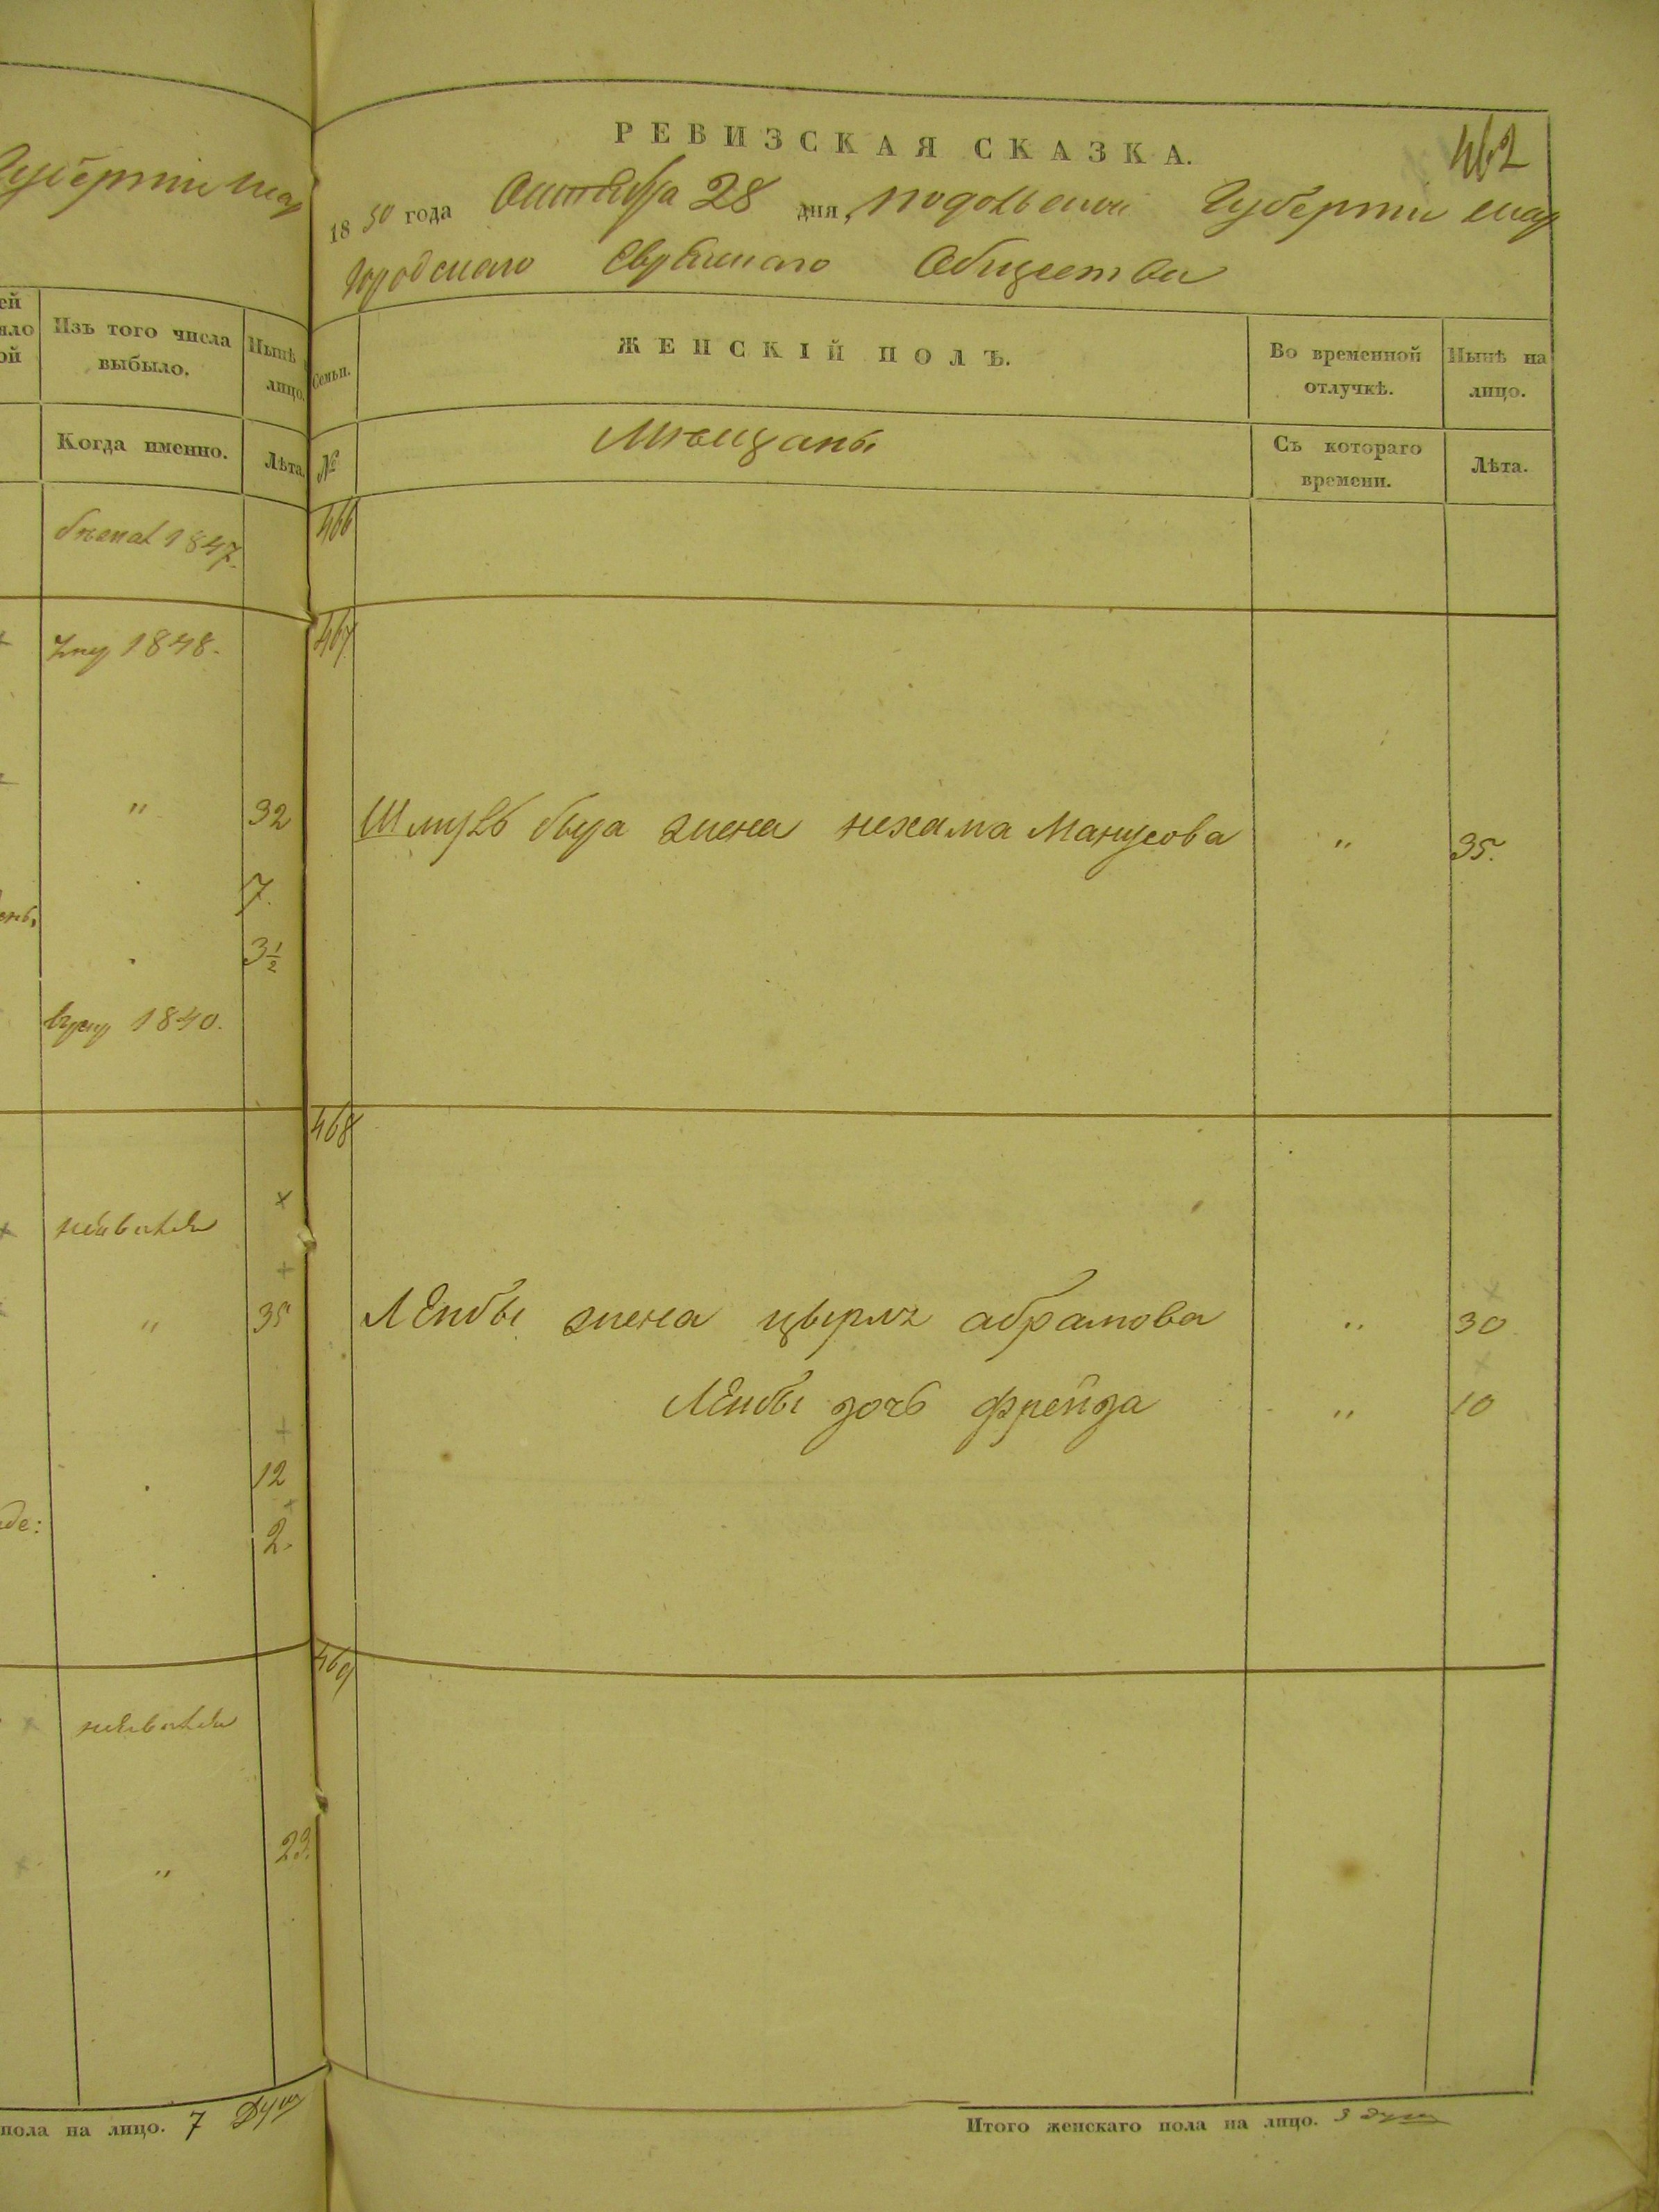 Губернiи шар
ей
яло
ой
Изъ того числа
выбыло.
Нынѣ
лицо.
Когда именно.
Лѣта.
1847.
1848.
"
32
7.
3 1/2
1840.
неявился
"
35
12
2.
неявился
"
23.
пола на лицо. 7 душ
РЕВИЗСКАЯ СКАЗКА.
462
1850 года Октября 28 дня, Подольской Губернiи шар
городскаго Еврейскаго Общества
Семьи.
ЖЕНСКІЙ ПОЛЪ.
Во временной
отлучкѣ.
Нынѣ на
лицо.
№
Мѣщаны
Съ котораго
времени.
Лѣта.
466
467
Шмуль жена нехама Манусова " 35.
468
Лейбы жена цырля абрамова " 30
Лейбы дочь фрейда " 10
469
Итого женскаго пола на лицо. 3 души